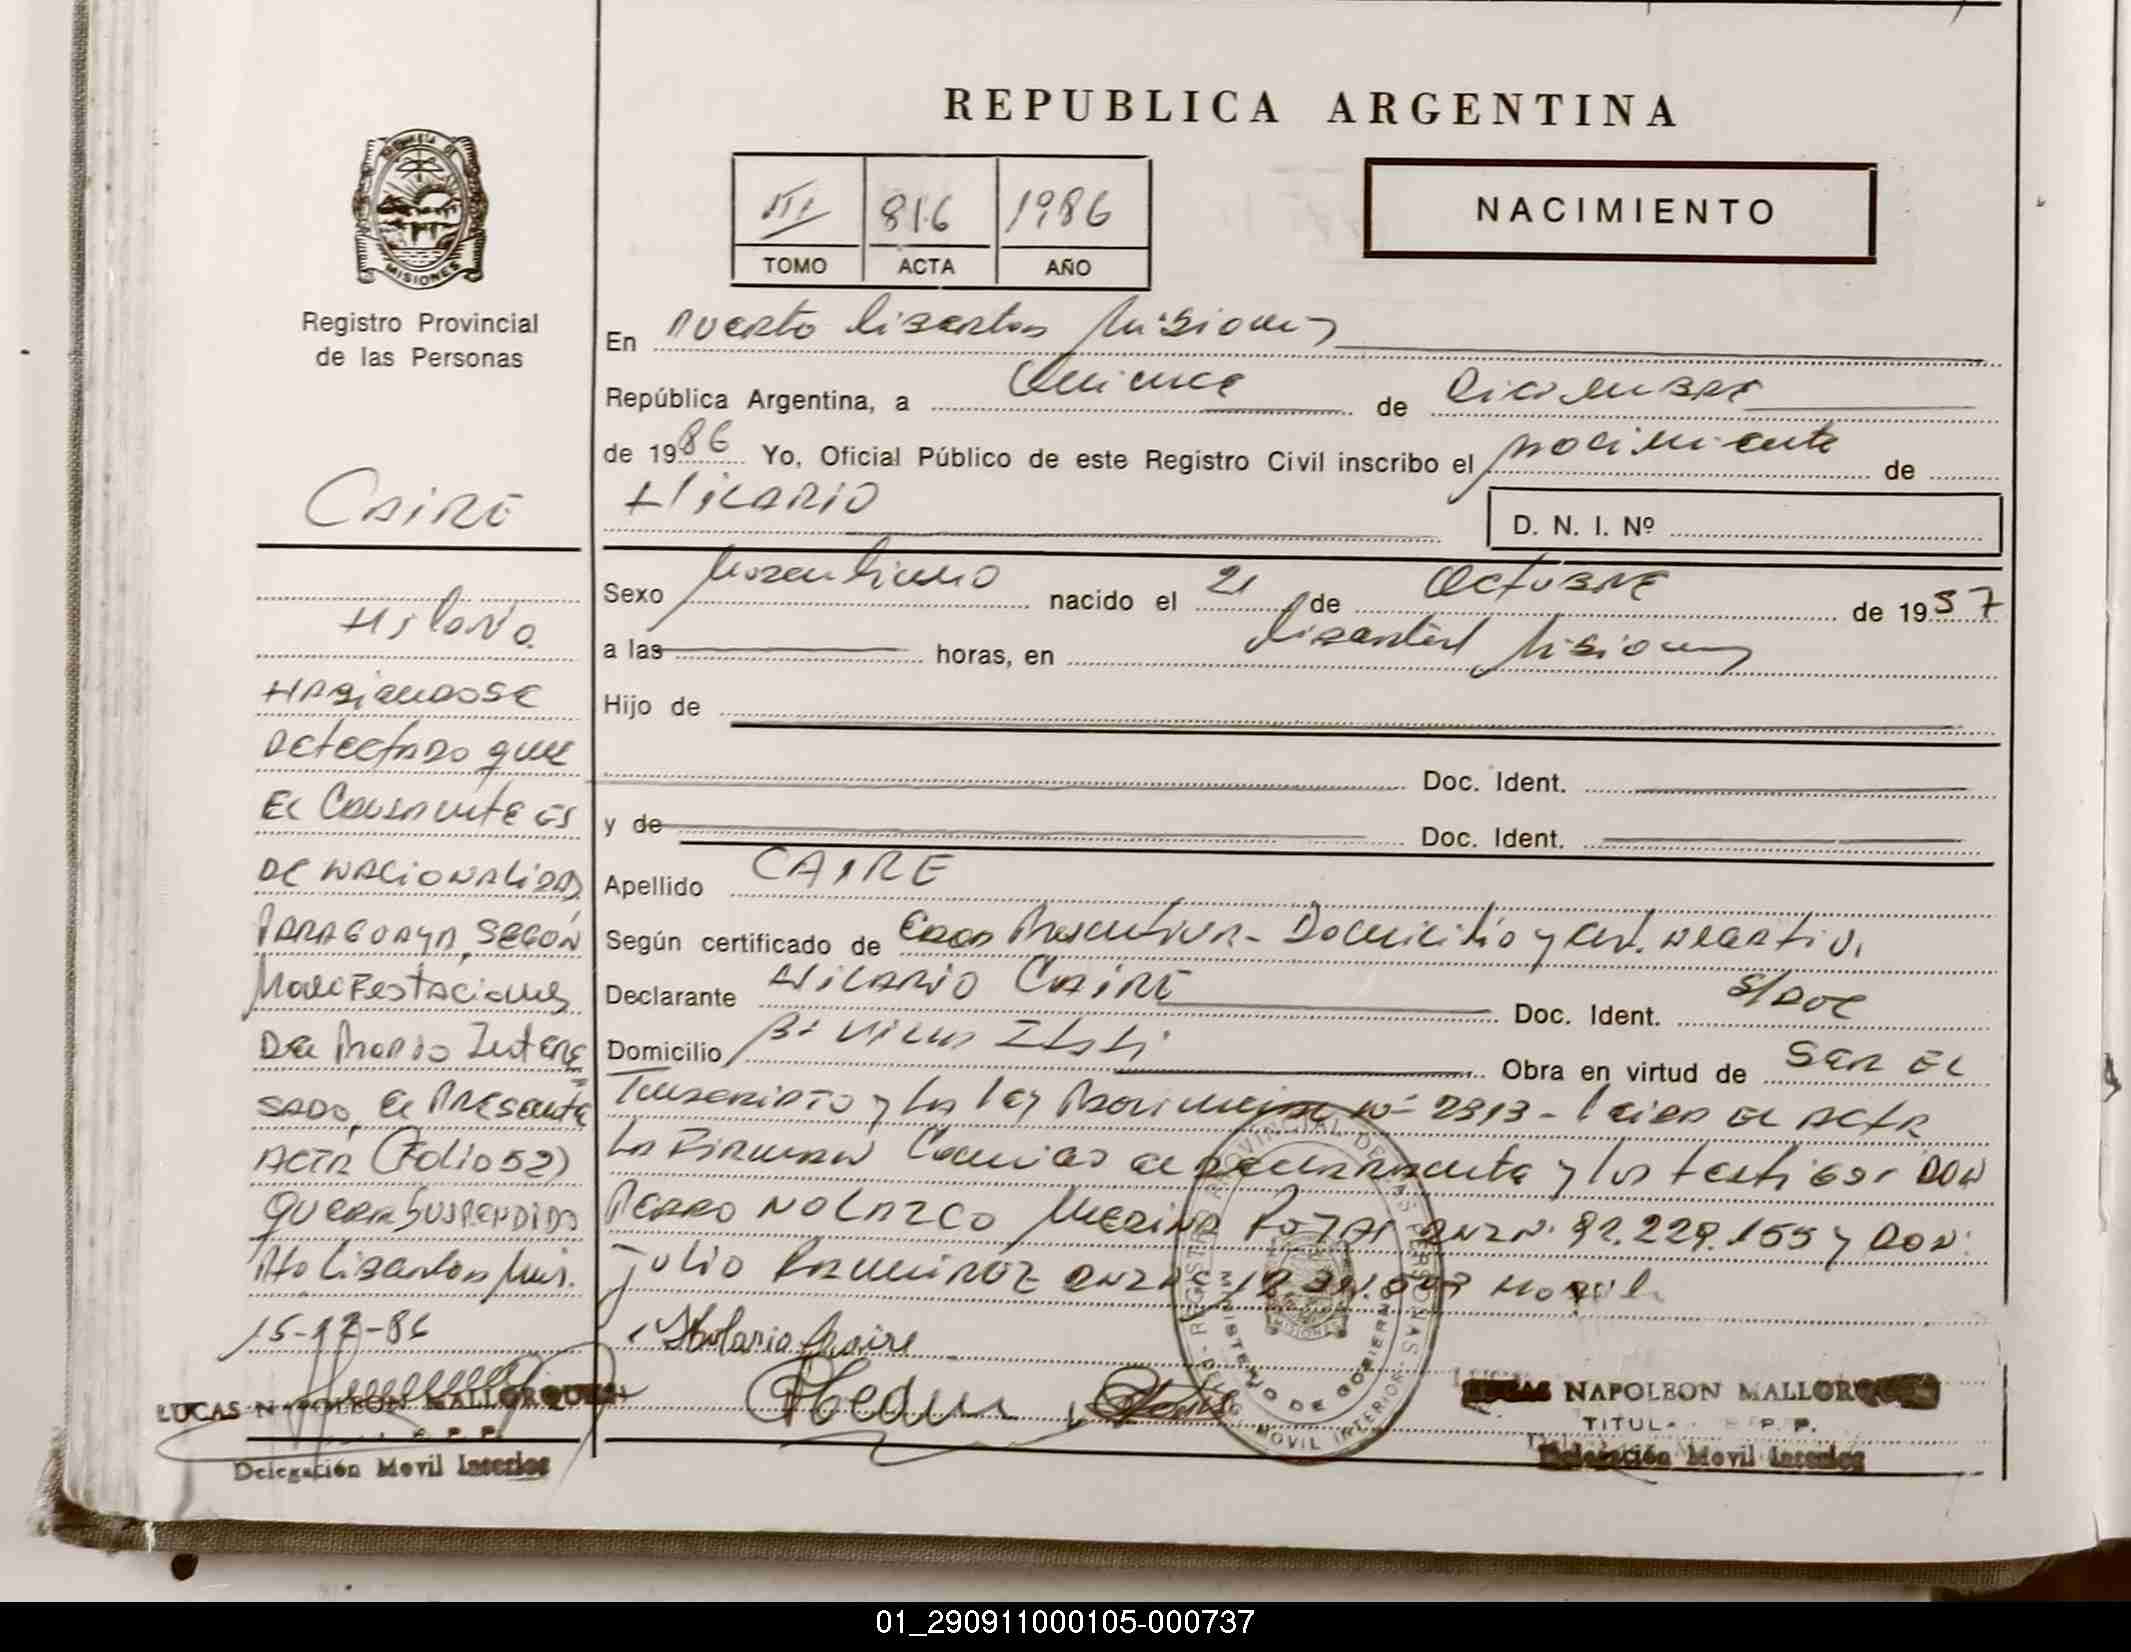 REPUBLICA ARGENTINA
III 816 1986
TOMO ACTA AÑO
NACIMIENTO
MISIONES
Registro Provincial
de las Personas
CAIRE
Hilario.
HABIENDOSE
DETECTADO QUE
EL CAUSANTE ES
DE NACIONALIDAD
PARAGUAYA, SEGÚN
MANIFESTACIONES
DEL PROPIO INTERE
SADO, EL PRESENTE
ACTA (Folio 52)
QUEDA SUSPENDIDO
Pto Libertad Mis.
15-12-86
LUCAS NAPOLEON MALLORQUIN
Delegación Movil Interior
En Puerto Libertad Misiones
República Argentina, a Quince de Diciembre
de 1986 Yo, Oficial Público de este Registro Civil inscribo el nacimiento de
HILARIO
D. N. I. Nº
Sexo Masculino nacido el 21 de OCTUBRE de 1957
a las horas, en Libertad Misiones
Hijo de
Doc. Ident.
y de Doc. Ident.
Apellido CAIRE
Según certificado de Edad Presuntiva - Domicilio y Cert. Negativo.
Declarante HILARIO CAIRE Doc. Ident. S/DOC
Domicilio Bº Villa Obra en virtud de SER EL
Inscripto y la Ley Provincial Nº - Leida EL ACTA
LA FIRMAN Conmigo el declarante y los testigos DON
PEDRO NOLAZCO MEDINA ROJAS DNI Nº 92.229.155 y DON
JULIO RAMIREZ DNI Nº
Hilario Caire
REGISTRO PROVINCIAL DE LAS PERSONAS
MINISTERIO DE GOBIERNO
DELEG. MOVIL INTERIOR
LUCAS NAPOLEON MALLORQUIN
TITULAR R. P. P.
Delegación Movil Interior
01_290911000105-000737